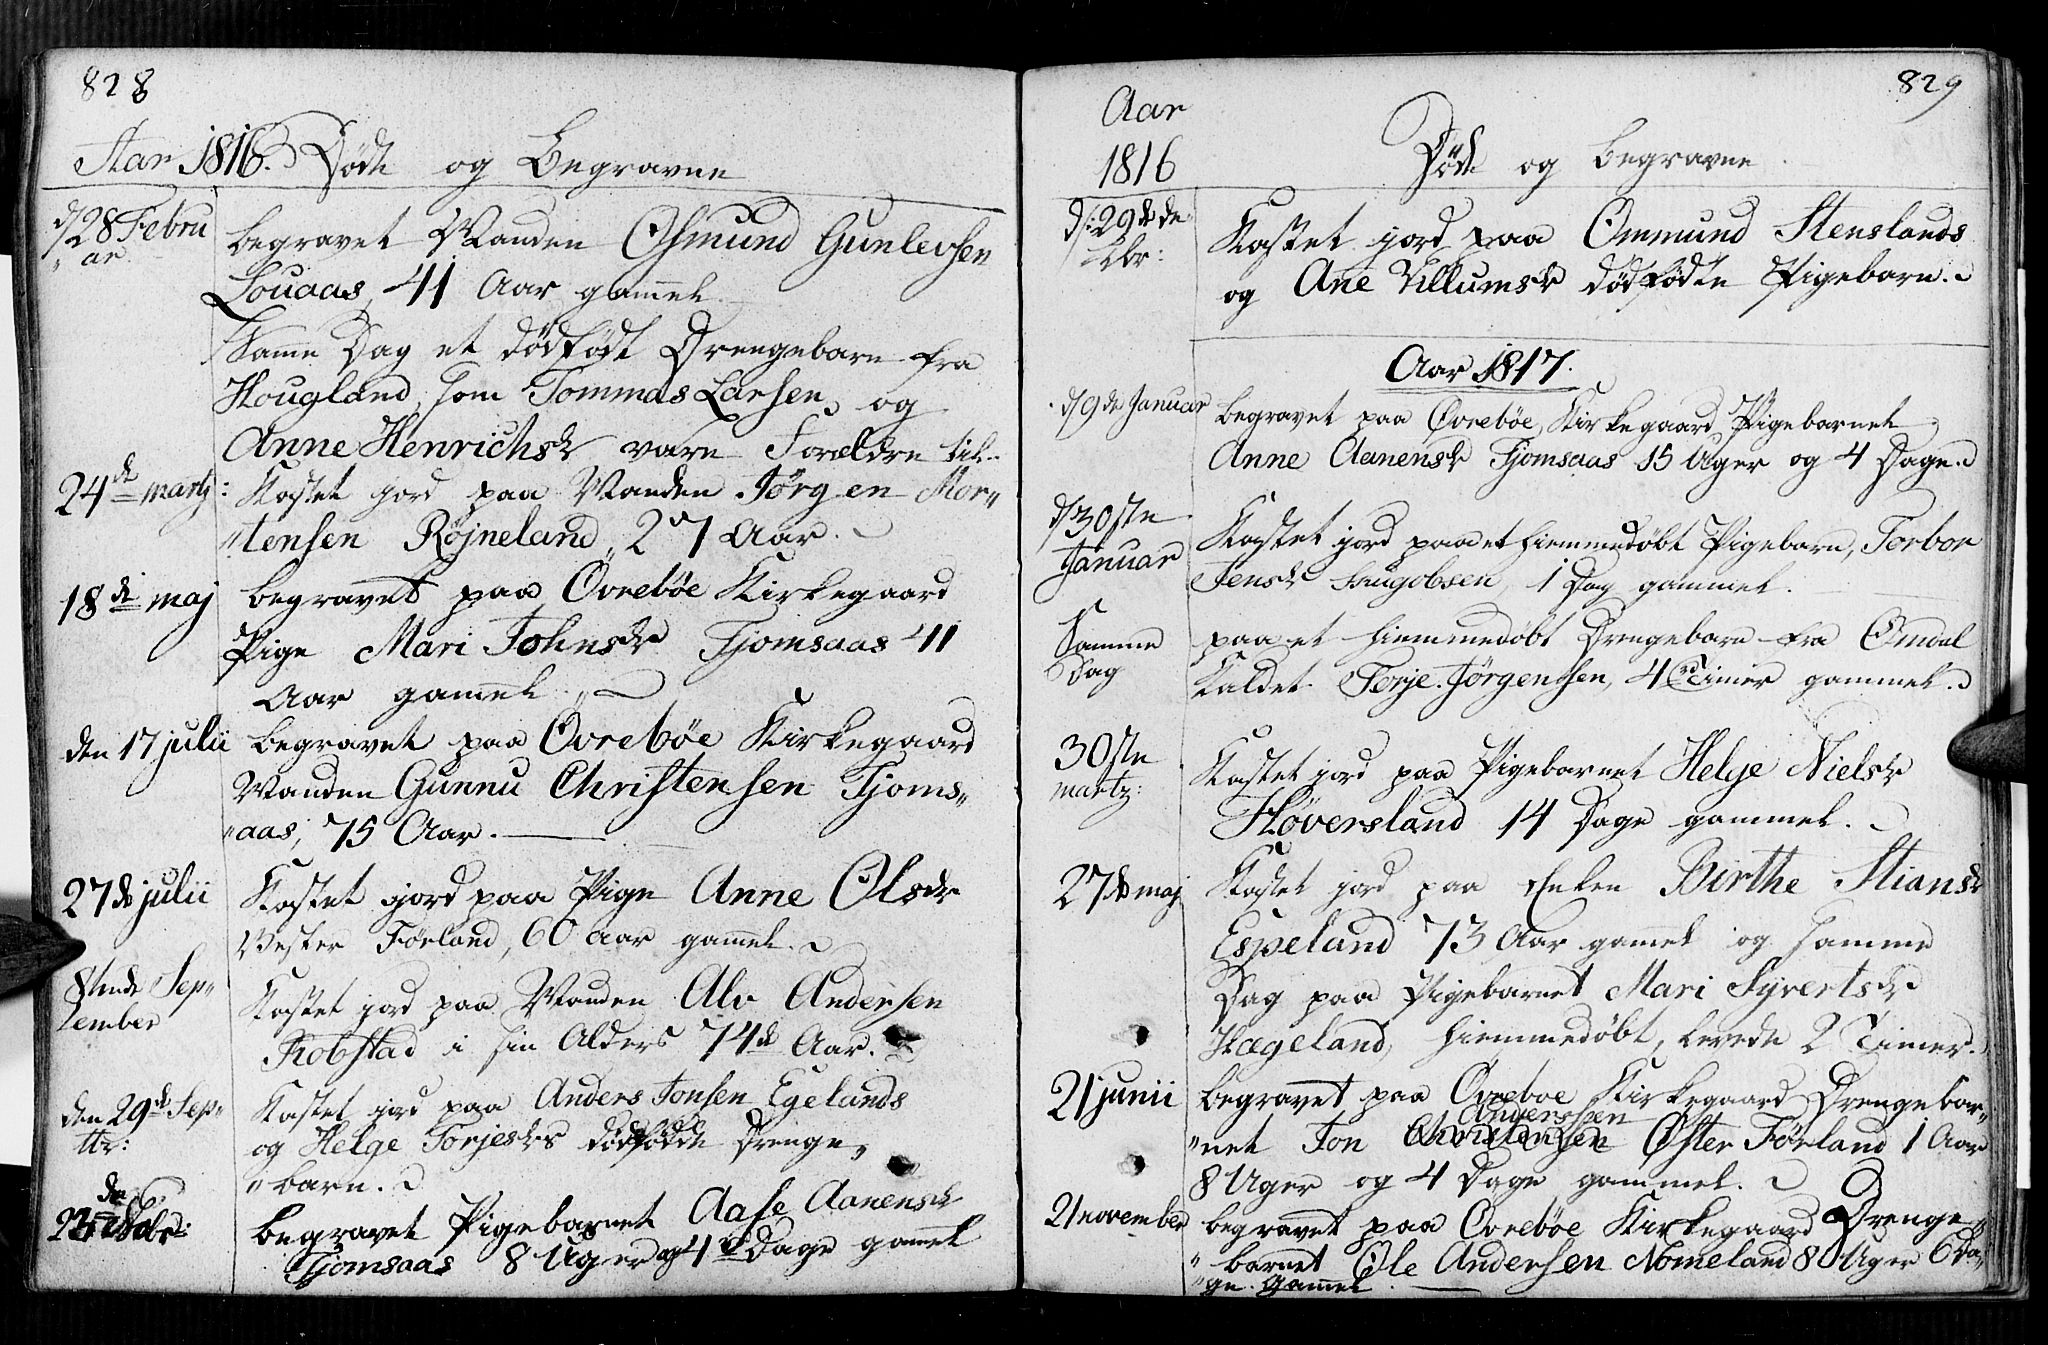 828
Aar 1816. Døde og Begravne
d/28 Febru
"ar
begravet Manden Osmund Gunlevsen
Louaas, 41 Aar gamel.
Samme Dag et dødfødt Drengebarn fra
Hougland, som Tommas Larsen, og
Anne Henrichsdr vare Forældre til.
24de martz: Kastet jord paa Manden Jørgen Mor"
"tensen Røjneland, 27 Aar.
18de maj begravet paa Øvrebøe Kirkegaard
Pige Mari Johnsdr Tjomsaas 41
Aar gamel.
den 17 julii begravet paa Øvrebøe Kirkegaard
Manden Gunnu Christensen Tjoms"
"aas, 75 Aar.
27de julii Kastet jord paa Pige Anne Olsdr
Vester Førland, 60 aar gamel.
8tende Sep"
tember
Kastet jord paa Manden Alv Andersen
Robstad i sin Alders 74de Aar.
den 29de Sep"
ttr:
Kastet jord paa Anders Jonsen Egelands
og Helge Torjesdrs dødfødde Drenge"
"barn.
begravet Pigebarnet Aase Aanensdr
Tjomsaas 8 Uger og 4 Dage gamel
829
Aar
1816
Døde og begravne
d/:29de de"
cbr:
Kastet jord paa Ommund Stenslands
og Ane Villumsdr dødfødte Pigebarn.
Aar 1817.
d/9de Januar begravet paa Øvrebøe Kirkegaard Pigebarnet
Anne Aanensdr Tjomsaas 15 Uger og 4 Dage.
d/30ste
Januar
Kastet jord paa et hiemmedøbt Pigebarn, Torbor
Jensdr 1 Dag gammel.
Samme
Dag
paa et hiemmedøbt Drengebarn fra Omdal
Kaldet Terje Jørgensen, 4 Timer gammel.
30ste
martz:
Kastet jord paa Pigebarnet Helge Nielsdr
Høversland 14 Dage gammel.
27de maj Kastet jord paa Enken Birthe Stiansdr
Espeland 73 Aar gamel og samme
Dag paa Pigebarnet Mari Syvertsdr
Hægeland, hiemmedøbt, levede 2 Timer.
21 junii begravet paa Øvreboe Kirkegaard Drengebar"
"net Jon Christensen Øster Førland 1 Aar
8 Uger og 4 Dage gammel.
21 november begravet paa Øvrebøe Kirkegaard Drenge"
"barnet Ole Andersen Nomeland 8 Uger 6 Da"
"ge gamel.